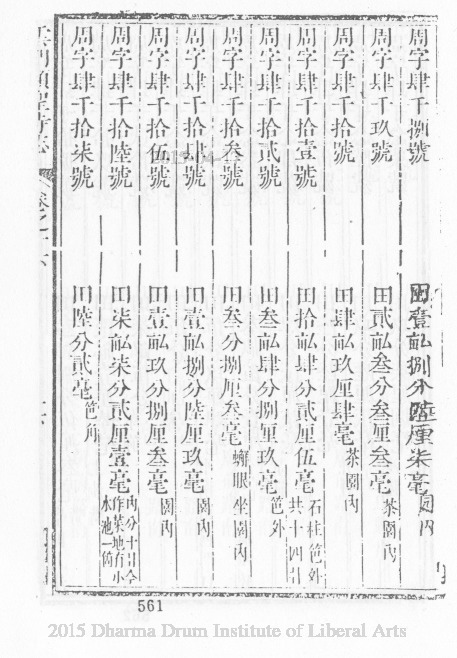 周字肆千捌號 田壹畝捌分陸厘柒毫園內
周字肆千玖號 田貳畝叁分叁厘叁毫茶園內
周字肆千拾號 田肆畝玖厘肆毫茶園內
周字肆千拾壹號 田拾畝肆分貳厘伍毫石柱笆外共十四計
周字肆千拾貳號 田叁畝肆分捌厘玖毫笆外
周字肆千拾叁號 田叁分捌厘叁毫蠏眼坐園內
周字肆千拾肆號 田壹畝捌分陸厘玖毫園內
周字肆千拾伍號 田壹畝玖分捌厘叁毫園內
周字肆千拾陸號 田柒畝柒分貳厘壹毫內分十計全作菜地有小水池一個
周字肆千拾柒號 田陸分貳毫笆角
卷之六
561
2015 Dharma Drum Institute of Liberal Arts